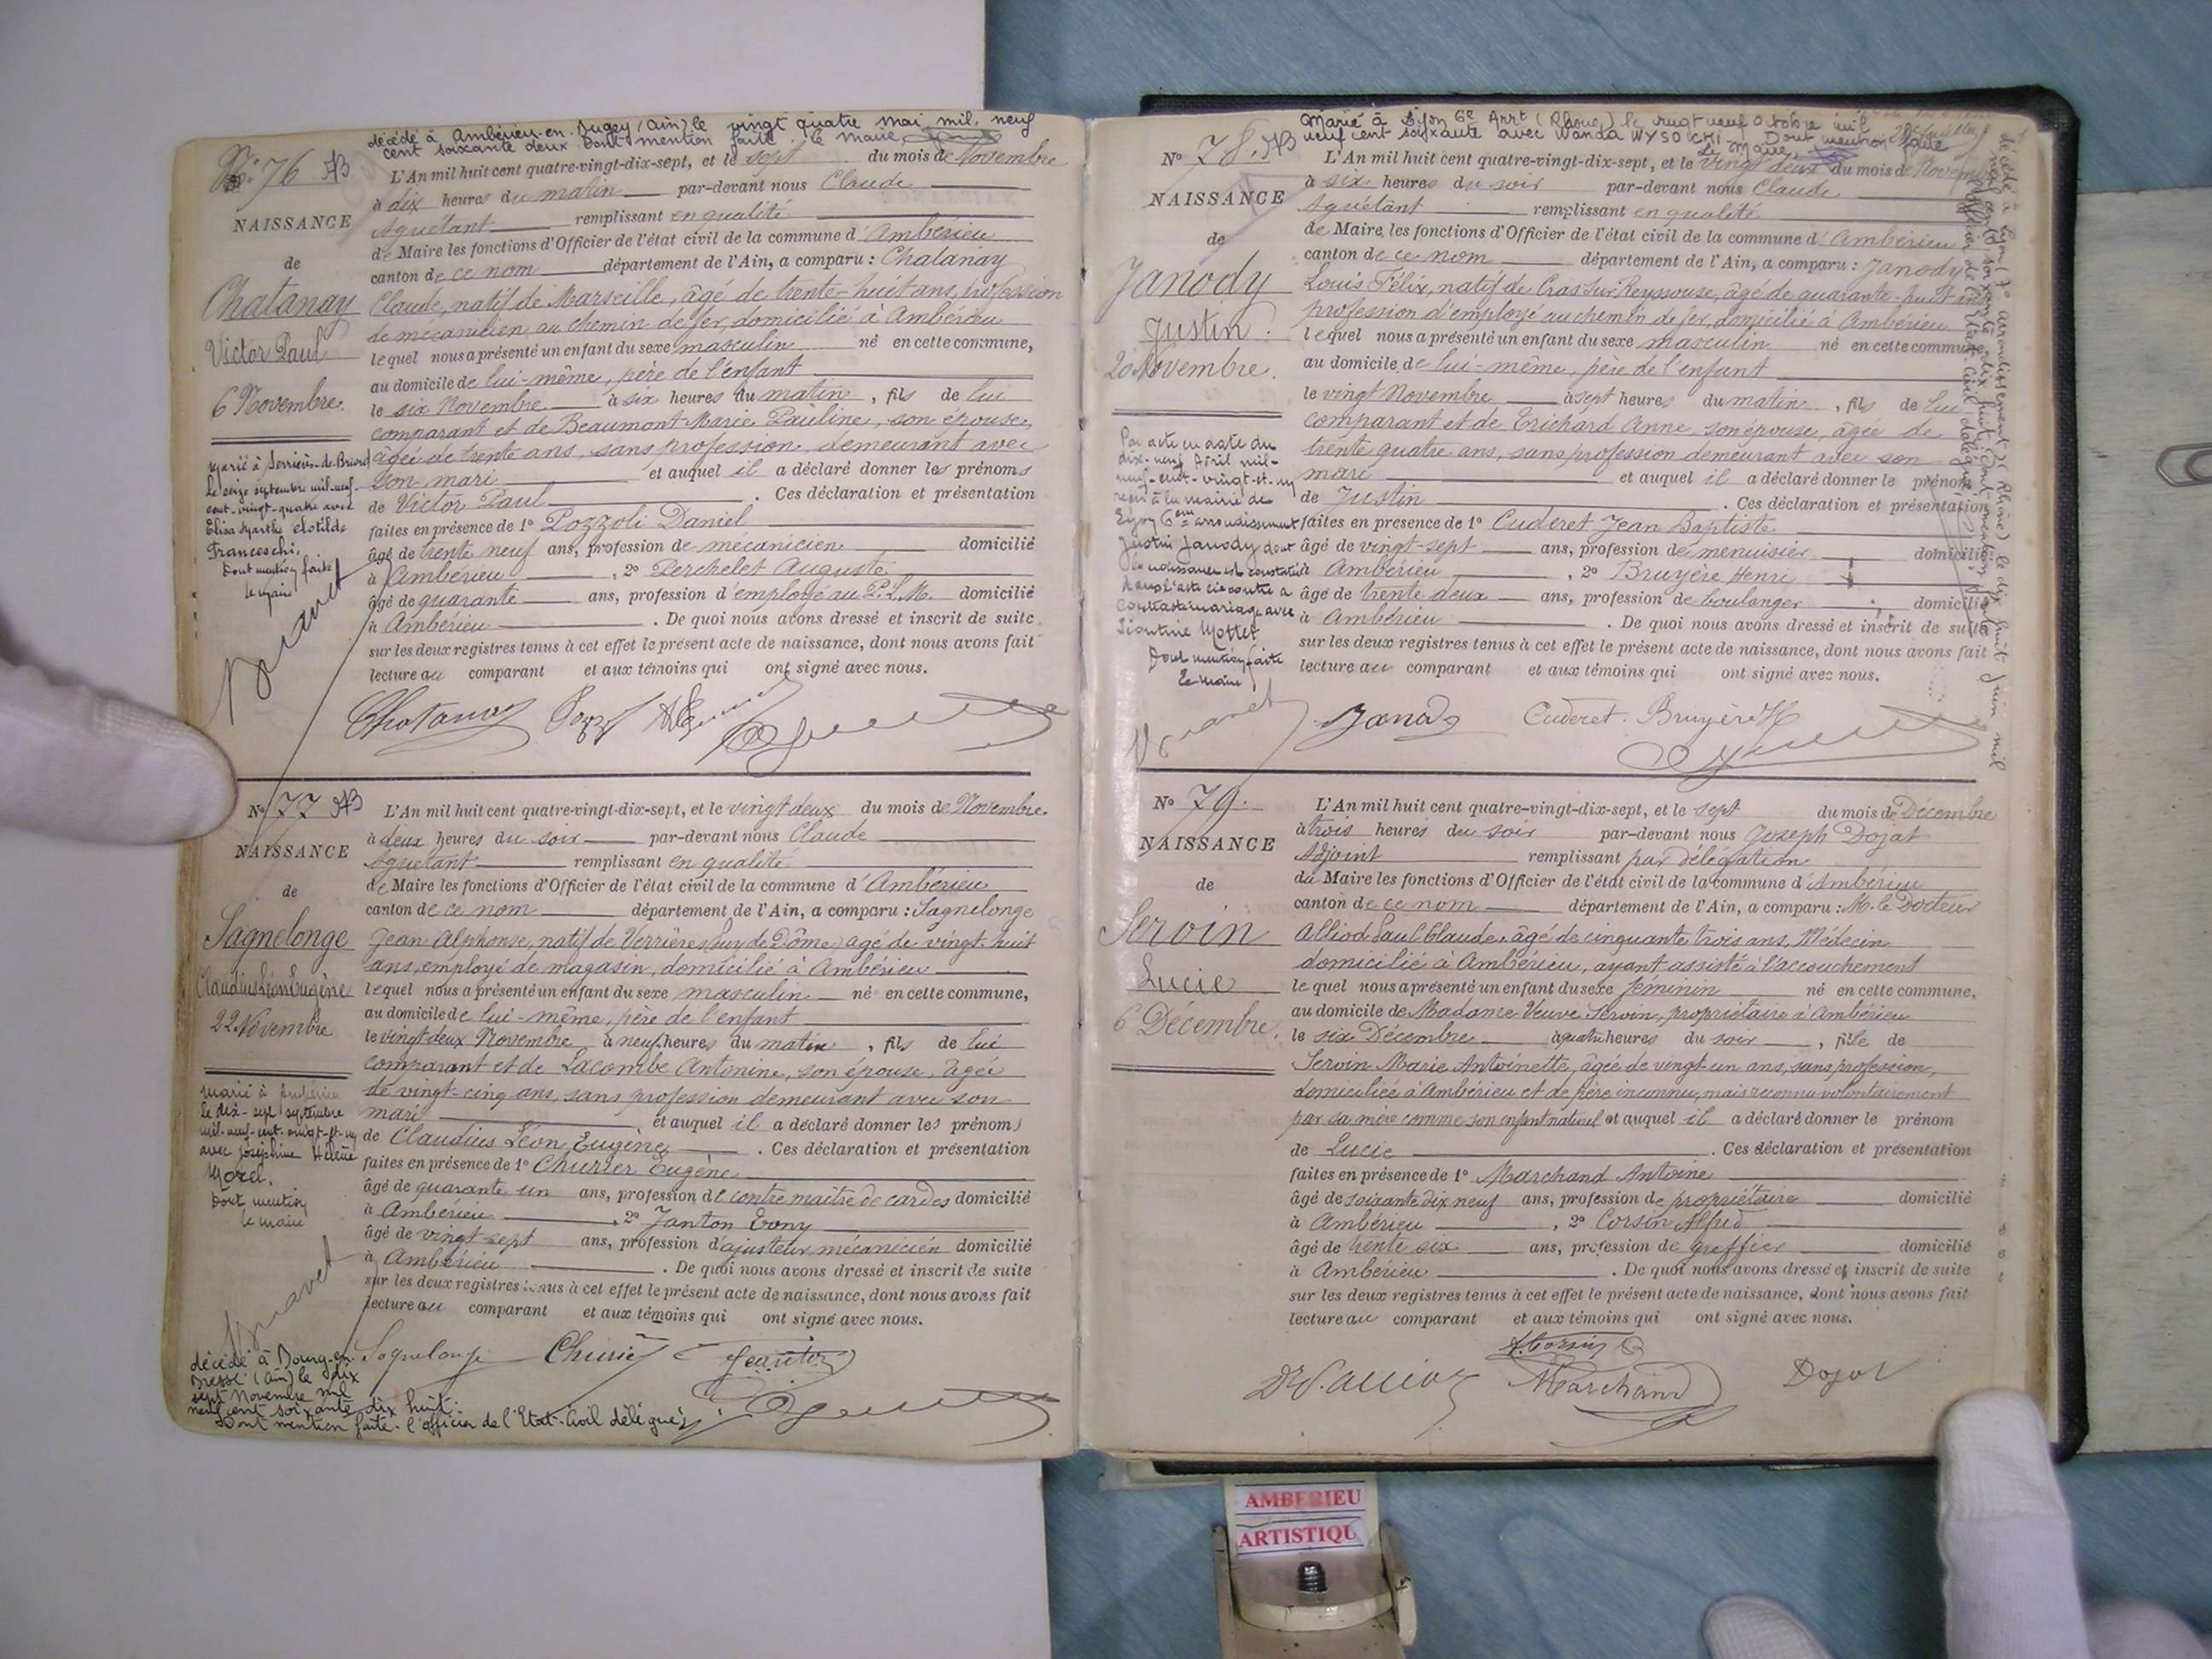 décédé à Ambérieu-en-Bugey (Ain) le vingt quatre mai mil neuf
cent soixante deux. Dont mention faite. le Maire
N° 76 AB
L'An mil huit cent quatre-vingt-dix-sept, et le sept du mois de Novembre
à dix heures du matin par-devant nous Claude
NAISSANCE
Aguétant remplissant en qualité
de Maire les fonctions d'Officier de l'état civil de la commune d'Ambérieu
de
canton de ce nom département de l'Ain, a comparu : Chatanay
Chatanay
Claude, natif de Marseille, âgé de trente-huit ans, profession
de mécanicien au chemin de fer, domicilié à Ambérieu
Victor Paul
lequel nous a présenté un enfant du sexe masculin né en cette commune,
au domicile de lui-même, père de l'enfant
6 Novembre.
le six Novembre à six heures du matin, fils de lui
comparant et de Beaumont Marie Pauline, son épouse,
âgée de trente ans, sans profession, demeurant avec
son mari et auquel il a déclaré donner les prénoms
de Victor Paul . Ces déclaration et présentation
faites en présence de 1° Pozzoli Daniel
âgé de trente neuf ans, profession de mécanicien domicilié
à Ambérieu , 2° Perchelet Auguste
âgé de quarante ans, profession d'employé au P.L.M. domicilié
à Ambérieu . De quoi nous avons dressé et inscrit de suite
sur les deux registres tenus à cet effet le présent acte de naissance, dont nous avons fait
lecture au comparant et aux témoins qui ont signé avec nous.
Marié à Serrières-de-Briord
le seize septembre mil-neuf-
cent-vingt-quatre avec
Elisa Marthe Clotilde
Franceschi.
Dont mention faite
le maire
Chatanay
N° 77 AB
L'An mil huit cent quatre-vingt-dix-sept, et le vingt deux du mois de Novembre
à deux heures du soir par-devant nous Claude
NAISSANCE
Aguétant remplissant en qualité
de Maire les fonctions d'Officier de l'état civil de la commune d'Ambérieu
de
canton de ce nom département de l'Ain, a comparu : Sagnelonge
Sagnelonge
Jean Alphonse, natif de Verrières (Puy de Dôme) âgé de vingt-huit
ans, employé de magasin, domicilié à Ambérieu
Claudius Léon Eugène
lequel nous a présenté un enfant du sexe masculin né en cette commune,
au domicile de lui-même, père de l'enfant
22 Novembre
le vingt deux Novembre à neuf heures du matin, fils de lui
comparant et de Lacombe Antonine, son épouse, âgée
de vingt-cinq ans, sans profession demeurant avec son
mari et auquel il a déclaré donner les prénoms
de Claudius Léon Eugène . Ces déclaration et présentation
faites en présence de 1° Churier Eugène
âgé de quarante un ans, profession de contre maître de cardes domicilié
à Ambérieu , 2° Janton Erony
âgé de vingt-sept ans, profession d'ajusteur mécanicien domicilié
à Ambérieu . De quoi nous avons dressé et inscrit de suite
sur les deux registres tenus à cet effet le présent acte de naissance, dont nous avons fait
lecture au comparant et aux témoins qui ont signé avec nous.
Marié à Ambérieu
le dix-sept septembre
mil-neuf-cent-vingt-et-un
avec Joséphine Hélène
Morel.
Dont mention
le maire
Sagnelonge Churier Janton
décédé à Bourg-en-
Bresse (Ain) le dix
sept Novembre mil
neuf cent soixante dix huit.
Dont mention faite - l'officier de l'Etat-Civil délégué
Marié à Lyon 6e Arrt (Rhône) le vingt neuf Octobre mil
neuf cent soixante avec Wanda WYSOCKI Dont mention faite
le Maire
N° 78. AB
L'An mil huit cent quatre-vingt-dix-sept, et le vingt deux du mois de Novembre
à six heures du soir par-devant nous Claude
NAISSANCE
Aguétant remplissant en qualité
de Maire les fonctions d'Officier de l'état civil de la commune d'Ambérieu
de
canton de ce nom département de l'Ain, a comparu : Janody
Janody
Louis Félix, natif de Cras sur Reyssouze, âgé de quarante-huit ans
profession d'employé au chemin de fer, domicilié à Ambérieu
Justin.
lequel nous a présenté un enfant du sexe masculin né en cette commune,
au domicile de lui-même, père de l'enfant
20 Novembre.
le vingt Novembre à sept heures du matin, fils de lui
comparant et de Trichard Anne, son épouse, âgée de
trente quatre ans, sans profession demeurant avec son
mari et auquel il a déclaré donner le prénom
de Justin . Ces déclaration et présentation
faites en présence de 1° Cuderet Jean Baptiste
âgé de vingt-sept ans, profession de menuisier domicilié
à Ambérieu , 2° Bruyère Henri
âgé de trente deux ans, profession de boulanger domicilié
à Ambérieu . De quoi nous avons dressé et inscrit de suite
sur les deux registres tenus à cet effet le présent acte de naissance, dont nous avons fait
lecture au comparant et aux témoins qui ont signé avec nous.
Par acte en date du
dix-neuf Avril mil-
neuf-cent-vingt-et-un
reçu à la mairie de
Lyon 6ème arrondissement
Justin Janody dont
la naissance est constatée
dans l'acte ci-contre a
contracté mariage avec
Léontine Mottet
Dont mention faite
Le Maire
décédé à Lyon (7e arrondissement) (Rhône) le dix huit Juin mil
neuf cent soixante dix huit. Dont mention faite
l'officier de l'Etat-Civil délégué
Janody Cuderet. Bruyère H
N° 79.
L'An mil huit cent quatre-vingt-dix-sept, et le sept du mois de Décembre
à trois heures du soir par-devant nous Joseph Dojat
NAISSANCE
Adjoint remplissant par délégation
du Maire les fonctions d'Officier de l'état civil de la commune d'Ambérieu
de
canton de ce nom département de l'Ain, a comparu : M. le Docteur
Servin
Alliod Paul Claude, âgé de cinquante trois ans, Médecin
domicilié à Ambérieu, ayant assisté à l'accouchement
Lucie
lequel nous a présenté un enfant du sexe féminin né en cette commune,
au domicile de Madame Veuve Servin, propriétaire à Ambérieu
6 Décembre.
le six Décembre à quatre heures du soir, fille de
Servin Marie Antoinette, âgée de vingt un ans, sans profession,
domiciliée à Ambérieu et de père inconnu, mais reconnu volontairement
par sa mère comme son enfant naturel et auquel il a déclaré donner le prénom
de Lucie . Ces déclaration et présentation
faites en présence de 1° Marchand Antoine
âgé de soixante dix neuf ans, profession de propriétaire domicilié
à Ambérieu , 2° Corsin Alfred
âgé de trente six ans, profession de greffier domicilié
à Ambérieu . De quoi nous avons dressé et inscrit de suite
sur les deux registres tenus à cet effet le présent acte de naissance, dont nous avons fait
lecture au comparant et aux témoins qui ont signé avec nous.
A. Corsin
Dr P. Alliod Marchand Dojat
AMBERIEU
ARTISTIQU